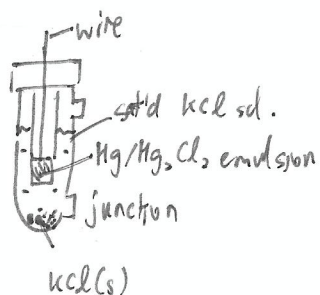 wire
sat'd KCl sol.
Hg/Hg₂Cl₂ emulsion
junction
KCl(s)